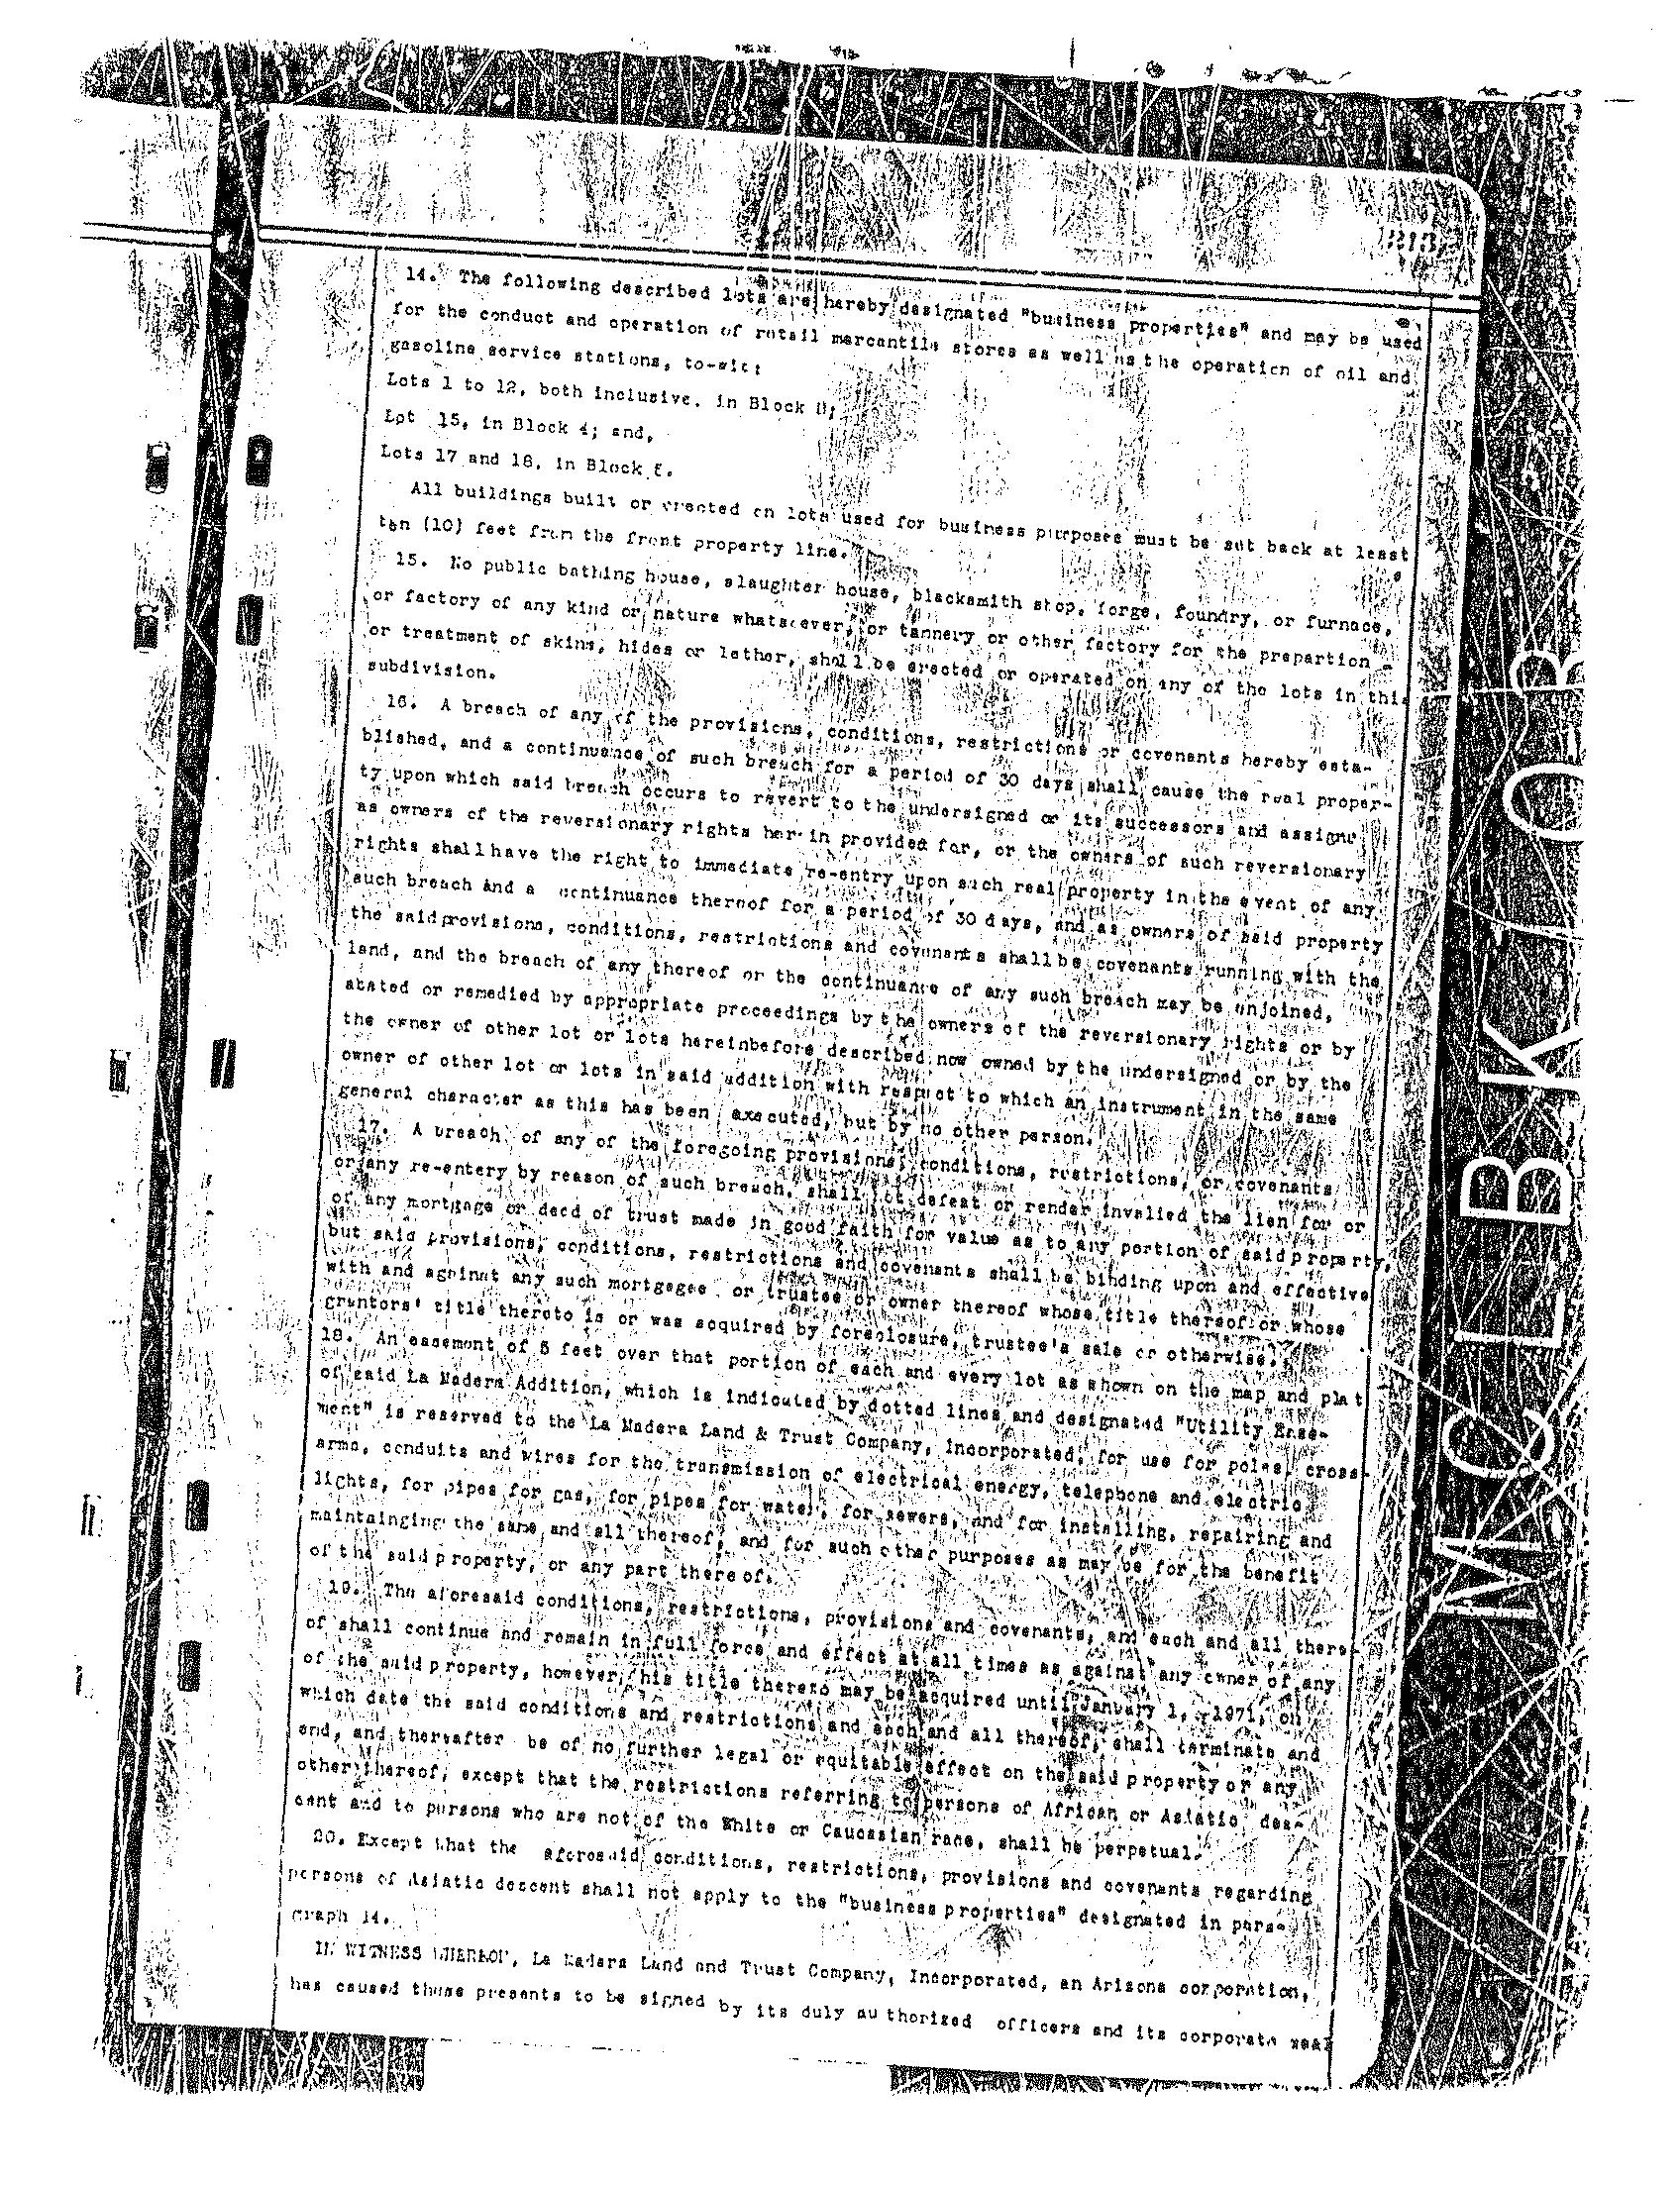 213
14. The following described lots are hereby designated "business properties" and may be used
for the conduct and operation of retail mercantile stores as well as the operation of oil and
gasoline service stations, to-wit:
Lots 1 to 12, both inclusive, in Block
Lot 15, in Block 4; and,
Lots 17 and 18, in Block
All buildings built or erected on lots used for business purposes must be set back at least
ten (10) feet from the front property line.
15. No public bathing house, slaughter house, blacksmith shop, forge, foundry, or furnace,
or factory of any kind or nature whatsoever, or tannery or other factory for the prepartion
or treatment of skins, hides or lether, shall be erected or operated on any of the lots in this
subdivision.
16. A breach of any of the provisions, conditions, restrictions or covenants hereby esta-
blished, and a continuance of such breach for a period of 30 days shall cause the real proper-
ty upon which said breach occurs to revert to the undersigned or its successors and assigns
as owners of the reversionary rights herein provided for, or the owners of such reversionary
rights shall have the right to immediate re-entry upon such real property in the event of any
such breach and a continuance thereof for a period of 30 days, and as owners of said property
the said provisions, conditions, restrictions and covenants shall be covenants running with the
land, and the breach of any thereof or the continuance of any such breach may be enjoined,
abated or remedied by appropriate proceedings by the owners of the reversionary rights or by
the owner of other lot or lots hereinbefore described now owned by the undersigned or by the
owner of other lot or lots in said addition with respect to which an instrument in the same
general character as this has been executed, but by no other person.
17. A breach of any of the foregoing provisions, conditions, restrictions, or covenants
or any re-entery by reason of such breach, shall not defeat or render invalied the lien for or
of any mortgage or deed of trust made in good faith for value as to any portion of said property,
but said provisions, conditions, restrictions and covenants shall be binding upon and effective
with and against any such mortgagee or trustee or owner thereof whose title thereof or whose
grantors' title thereto is or was acquired by foreclosure, trustee's sale or otherwise.
18. An easement of 5 feet over that portion of each and every lot as shown on the map and plat
of said La Madera Addition, which is indicated by dotted lines and designated "Utility Ease-
ment" is reserved to the La Madera Land & Trust Company, Incorporated, for use for poles, cross-
arms, conduits and wires for the transmission of electrical energy, telephone and electric
lights, for pipes for gas, for pipes for water, for sewers, and for installing, repairing and
maintainging the same and all thereof, and for such other purposes as may be for the benefit
of the said property, or any part thereof.
19. The aforesaid conditions, restrictions, provisions and covenants, and each and all there-
of shall continue and remain in full force and effect at all times as against any owner of any
of the said property, however his title thereto may be acquired until January 1, 1971, on
which date the said conditions and restrictions and each and all thereof, shall terminate and
end, and thereafter be of no further legal or equitable effect on the said property or any
other thereof, except that the restrictions referring to persons of African or Asiatic des-
cent and to persons who are not of the White or Caucasian race, shall be perpetual.
20. Except that the aforesaid conditions, restrictions, provisions and covenants regarding
persons of Asiatic descent shall not apply to the "business properties" designated in para-
graph 14.
IN WITNESS WHEREOF, La Madera Land and Trust Company, Incorporated, an Arizona corporation,
has caused these presents to be signed by its duly authorized officers and its corporate seal